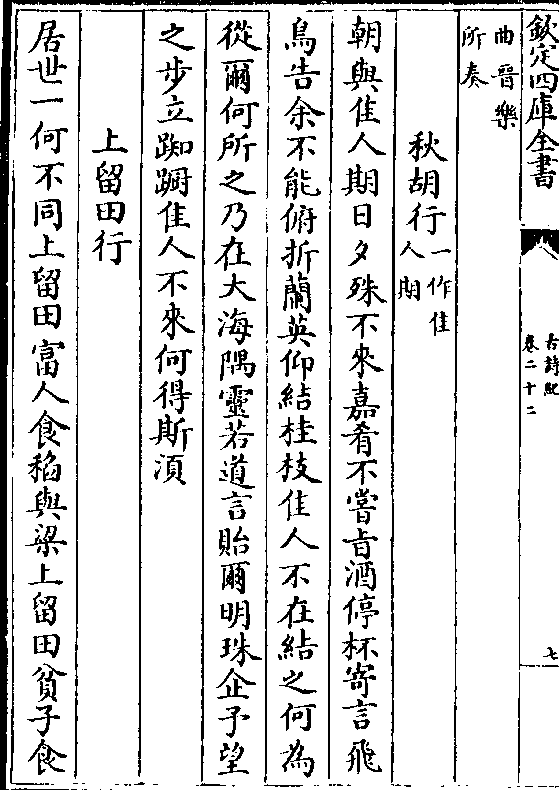 欽定四庫全書
古詩紀
卷二十二
七
曲晉樂
所奏
秋胡行一作佳
人期
朝與佳人期日夕殊不來嘉肴不嘗旨酒停杯寄言飛
鳥告余不能俯折蘭英仰結桂枝佳人不在結之何為
從爾何所之乃在大海隅靈若道言貽爾明珠企予望
之步立踟躕佳人不來何得斯湏
上留田行
居世一何不同上留田富人食稻與粱上留田貧子食